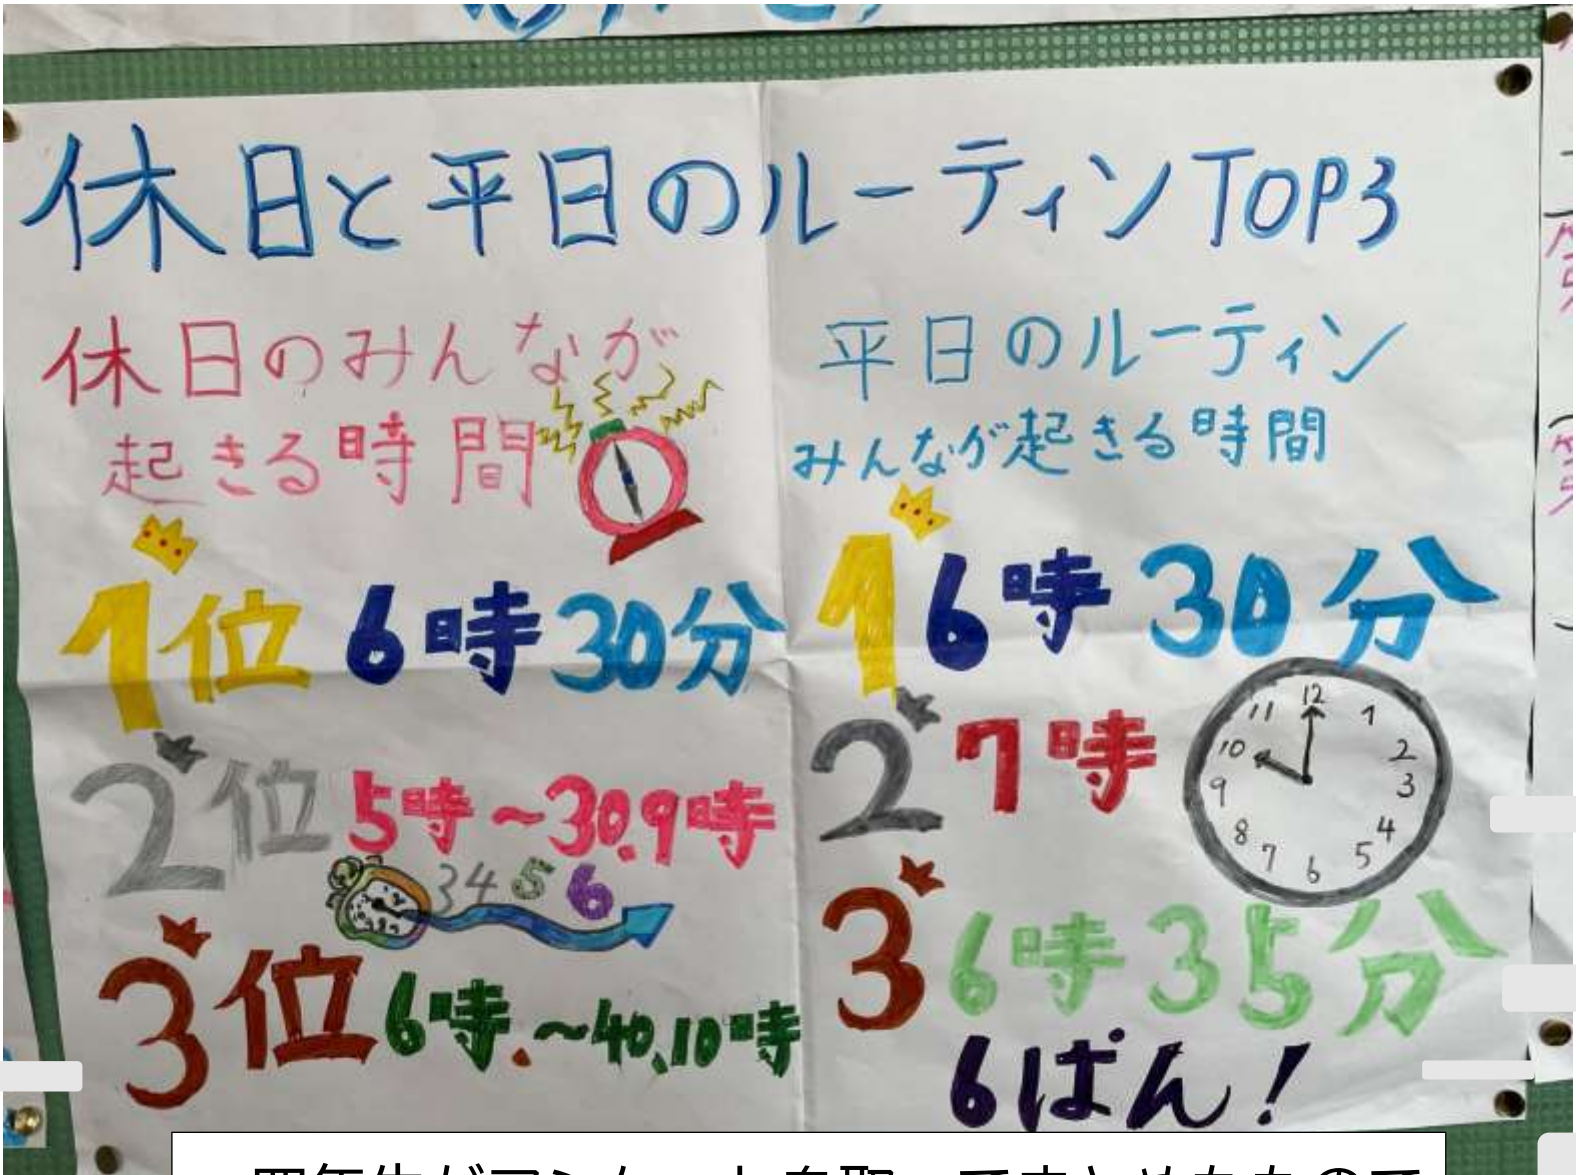 休日と平日のルーティンTOP3
休日のみんなが
起きる時間
1位 6時30分
2位 5時~30.9時
3 4 5 6
3位 6時.~40.10時
平日のルーティン
みんなが起きる時間
1 6時30分
2 7時
12 1 2 3 4 5 6 7 8 9 10 11
3 6時35分
6ぱん!